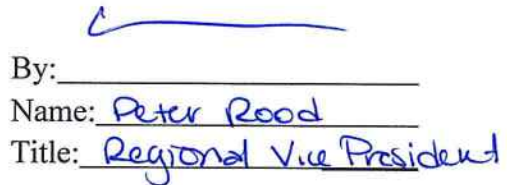 By:
Name: Peter Rood
Title: Regional Vice President